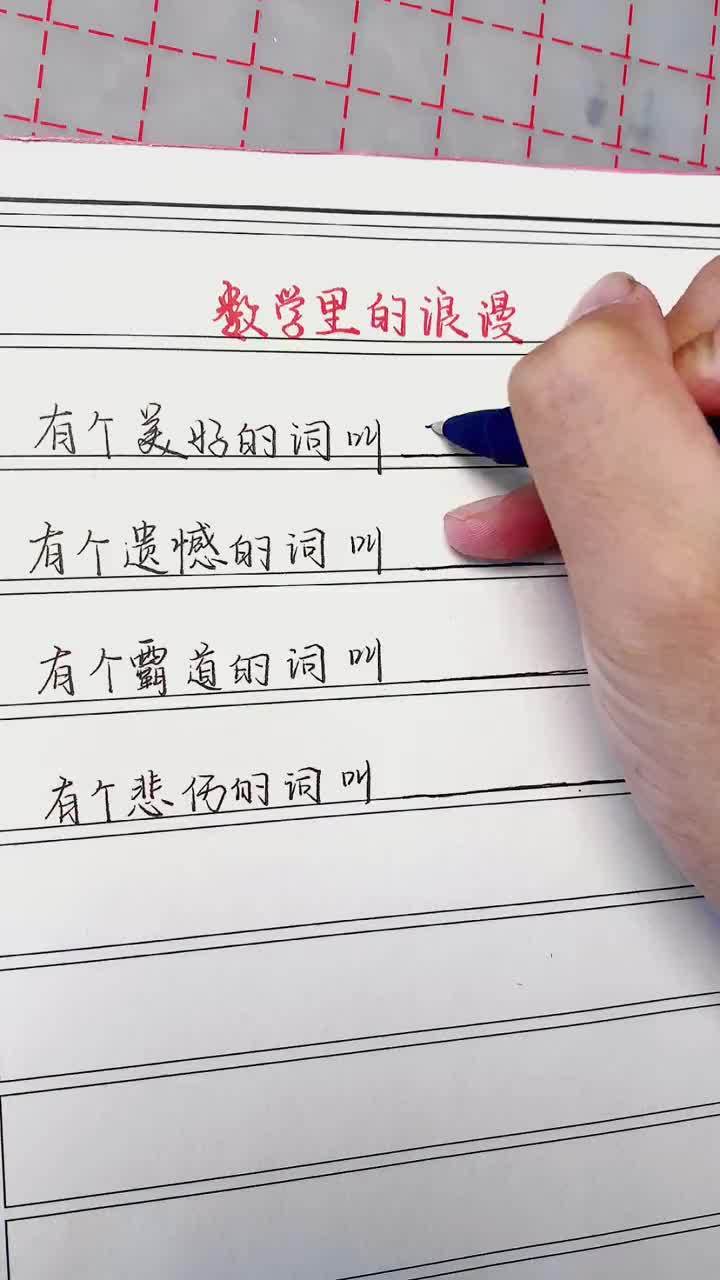 数学里的浪漫
有个美好的词叫
有个遗憾的词叫
有个霸道的词叫
有个悲伤的词叫